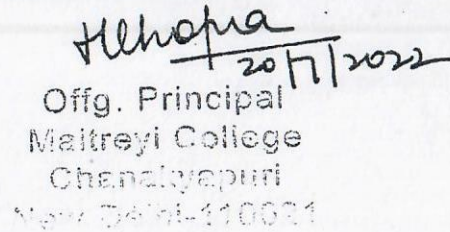 20/7/2022
Offg. Principal
Maitreyi College
Chanakyapuri
New Delhi-110021